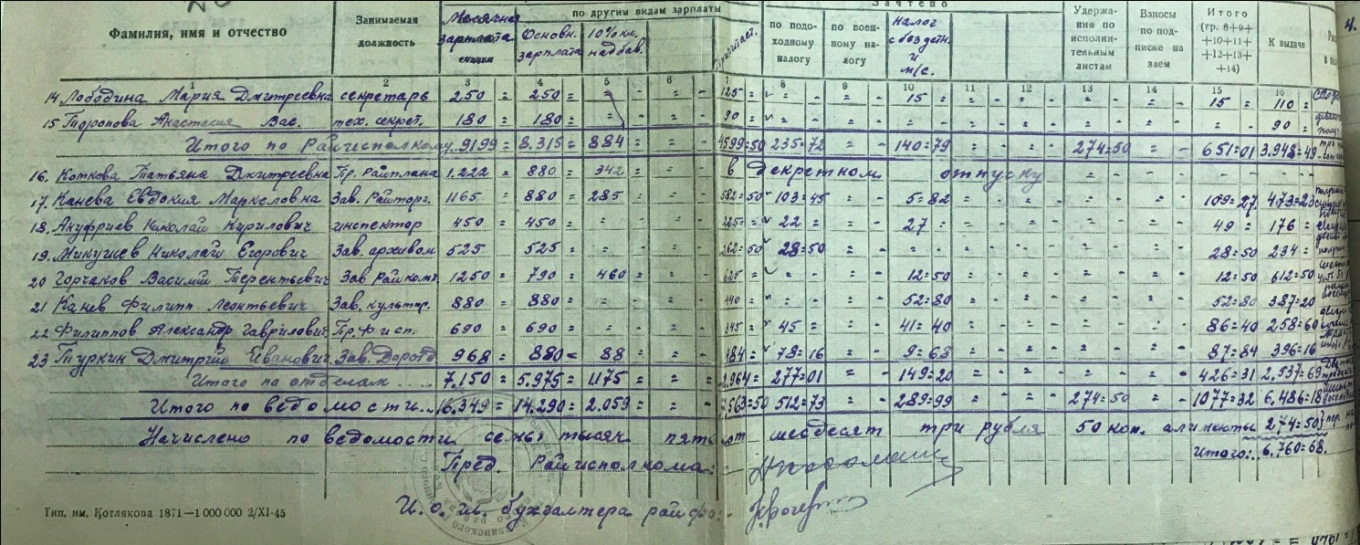 по другим видам зарплаты Зачтено 4.
Фамилия, имя и отчество Занимаемая должность Месячная зарплата Основн. зарплата 10% кл. надбав. по подоходному налогу по военному налогу налог с бездетн. и м/с. Удержано по исполнительным листам Взносы по подписке на заем Итого (гр. 8+9+ +10+11+ +12+13+ +14) К выдаче
1 2 3 4 5 6 7 8 9 10 11 12 13 14 15 16
14 Лободина Мария Дмитреевна секретарь 250 = 250 = - 125 = - - 15 = - - - - 15 = 110 =
15 Торопова Анастасия Вас. тех. секрет. 180 = 180 = - 90 = - - - - - - - - 90 =
Итого по Райисполкому.. 9199 = 8.315 = 884 = = - 4599=50 235=72 = - 140=79 = - = - 274=50 = - 651=01 3.948=49
16. Коткова Татьяна Дмитреевна Пр. Райплана 1.222 = 880 = 342 = = - в декретном отпуску
17. Канева Евдокия Маркеловна Зав. Райторг. 1165 = 880 = 285 = = - 582=50 103=45 = - 5=82 = - = - = - = - 109=27 473=23
18. Ануфриев Николай Кирилович инспектор 450 = 450 = = - = - 225= 22 = = - 27 = = - = - = - = - 49 = 176 =
19. Микушев Николай Егорович Зав. архивом 525 = 525 = = - = - 262=50 28=50 = - = - = - = - = - = - 28=50 234 =
20 Горчаков Василий Терентьевич Зав. Райкомх. 1250 = 790 = 460 = = - 625 = = - = - 12=50 = - = - = - = - 12=50 612=50
21 Канев Филипп Леонтьевич Зав. культпр. 880 = 880 = = - = - 440 = = - = - 52=80 = - = - = - = - 52=80 387=20
22 Филиппов Александр Гаврилович 690 = 690 = = - = - 345 = 45 = = - 41=40 = - = - = - = - 86=40 258=60
23 Туркин Дмитрий Иванович Зав. Доротд. 968 = 880 = 88 = = - 484 = 78=16 = - 9=68 = - = - = - = - 87=84 396=16
Итого по отделам .... 7.150 = 5.975 = 1175 = = - 2.964 = 277=01 = - 149=20 = - = - = - = - 426=31 2.537=69
Итого по ведомости... 16.349 = 14.290 = 2.059 = = - 7.563=50 512=73 = - 289=99 = - = - 274=50 = - 1077=32 6.486=18
Начислено по ведомости семь тысяч пятьсот шесдесят три рубля 50 коп. алименты 274=50
Итого:.. 6.760=68.
Пред. Райисполкома:
И. о. гл. бухгалтера райфо:
Тип. им. Котлякова 1871—1 000 000 2/XI-45